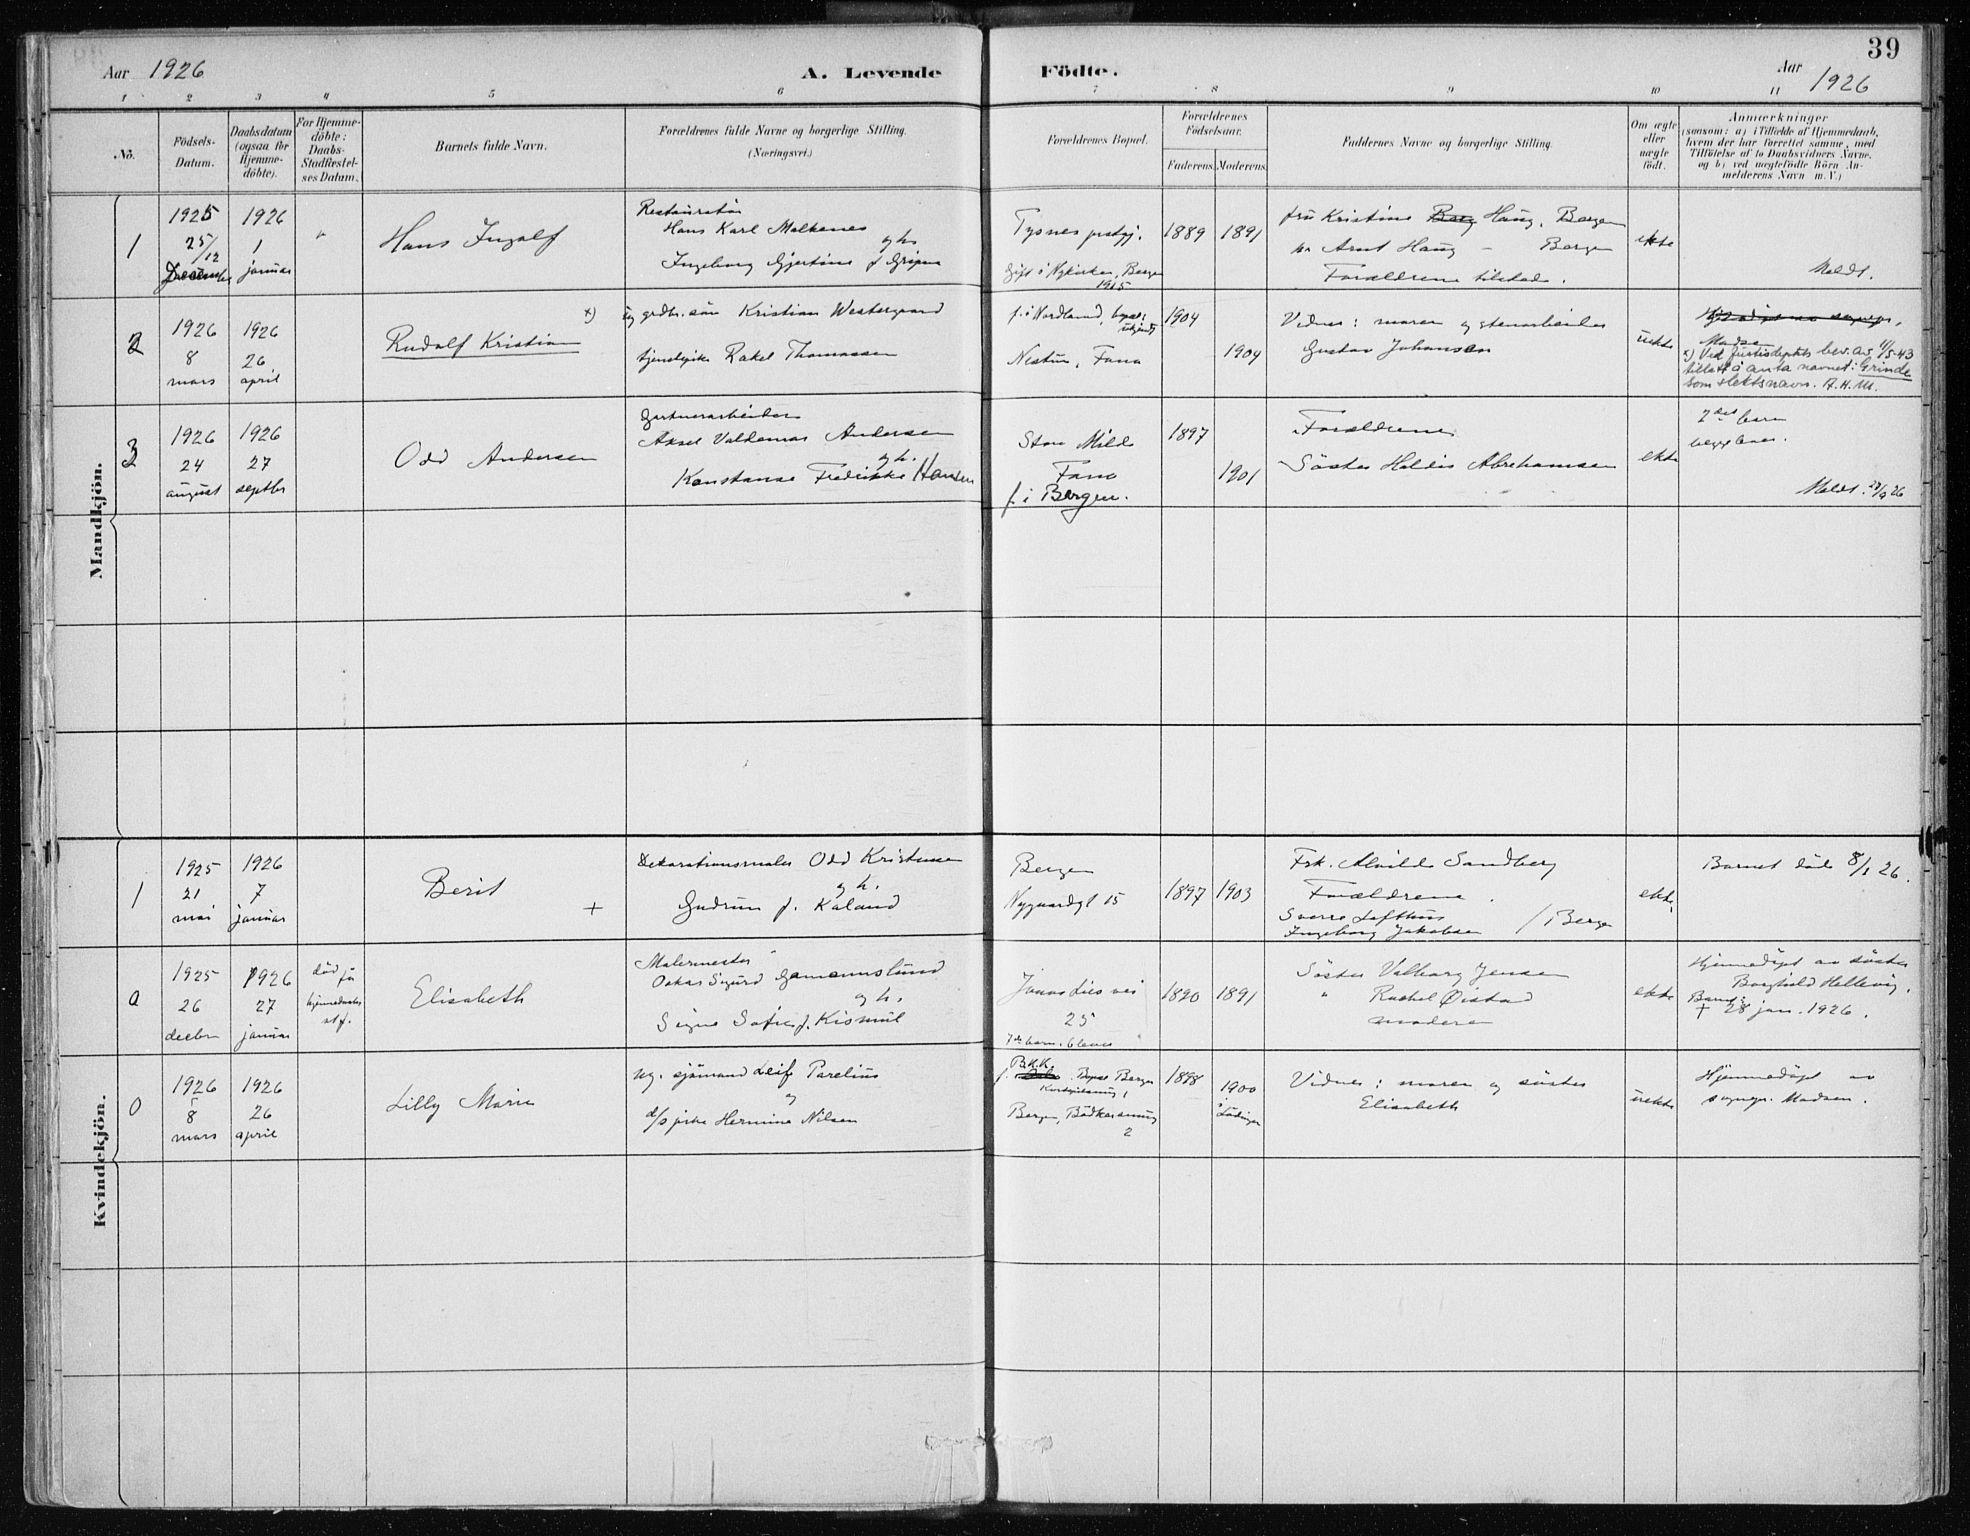 39
Aar 1926
A. Levende
Födte.
Aar 1926
1 2 3 4 5 6 7 8 9 10 11
No.
Födsels-
Datum.
Daabsdatum
(ogsaa for
Hjemme-
döbte).
For Hjemme-
döbte:
Daabs-
Stadfæstel-
ses Datum.
Barnets fulde Navn.
Forældrenes fulde Navne og borgerlige Stilling.
(Næringsvei.)
Forældrenes Bopæl.
Forældrenes
Födselsaar.
Faderens.
Moderens.
Faddernes Navne og borgerlige Stilling.
Om ægte
eller
uægte
födt.
Anmærkninger
(saasom: a) i Tilfælde af Hjemmedaab,
hvem der har forrettet samme, med
Tilföielse af to Daabsvidners Navne,
og b) ved uægtefödte Börn An-
melderens Navn m. V.)
Mandkjön.
1
1925
25/12
December
1926
1
januar
"
Hans Ingolf
Restauratör
Hans Karl Malkenes
og h.
Ingeborg Gjertine f. Gripen
Tysnes prstgj.
Gift i Nykirken, Bergen
1915
1889
1891
fru Kristine Berg Haug, Bergen
hr Arnt Haug — Bergen
Forældrene tilstede.
ekte
Meldt.
2
1926
8
mars
1926
26
april
Rudolf Kristian
x)
ug grdbr. sön Kristian Westergaard
tjenstepike Rakel Thomassen
f. i Nordland, bopæl:
ukjendt
Nestun, Fana
1904
1904
Vidner: moren og stenarbeider
Gustav Johansen
uekte
Madsen
x) Ved Justisdeptets bev. av 11/5-43
tillatt å anta navnet: Grinde
som slektsnavn. A.H.M.
3
1926
24
august
1926
27
septbr
Odd Andersen
Gartnerarbeider
Aksel Valdemar Andersen
og h.
Konstanse Fredrikke Hansen
Store Milde
Fana
f. i Bergen.
1897
1901
Forældrene
Söster Haldis Abrahamsen
ekte
2det barn
begge lever.
Meldt. 27/9 26
Kvindekjön.
1
1925
21
mai
1926
7
januar
Berit
+
Dekorationsmaler Odd Kristensen
og h.
Gudrun f. Kaland
Bergen
Nygaardsgt 15
1897
1903
Frk. Alvilde Sandberg
Forældrene.
Sverre Lofthus
Ingeborg Jakobsen / Bergen
ekte.
Barnet döde 8/1 26.
0
1925
26
decbr
1926
27
januar
död för
hjemmedaabs
stf.
Elisabeth
Malermester
Oskar Sigurd Gammelslund
og h.
Signe Sofie f. Kismul
Jonas Lies vei
25
7de barn. 6 lever
1890
1891
Söster Valborg Jensen
" Rachel Öistad
moderen
ekte
Hjemmedöpt av söster
Borghild Hellevig.
Barnet
+ 28 jan. 1926.
0
1926
8
mars
1926
26
april
Lilly Marie
ug. sjömand Leif Parelius
og
d/s pike Hermine Nilsen
Bopæl Bergen
Bergen, Bödkersmug
2
1898
1900
i Lödingen
Vidner: moren og söster
Elisabeth
uekte
Hjemmedöpt av
sognepr. Madsen.